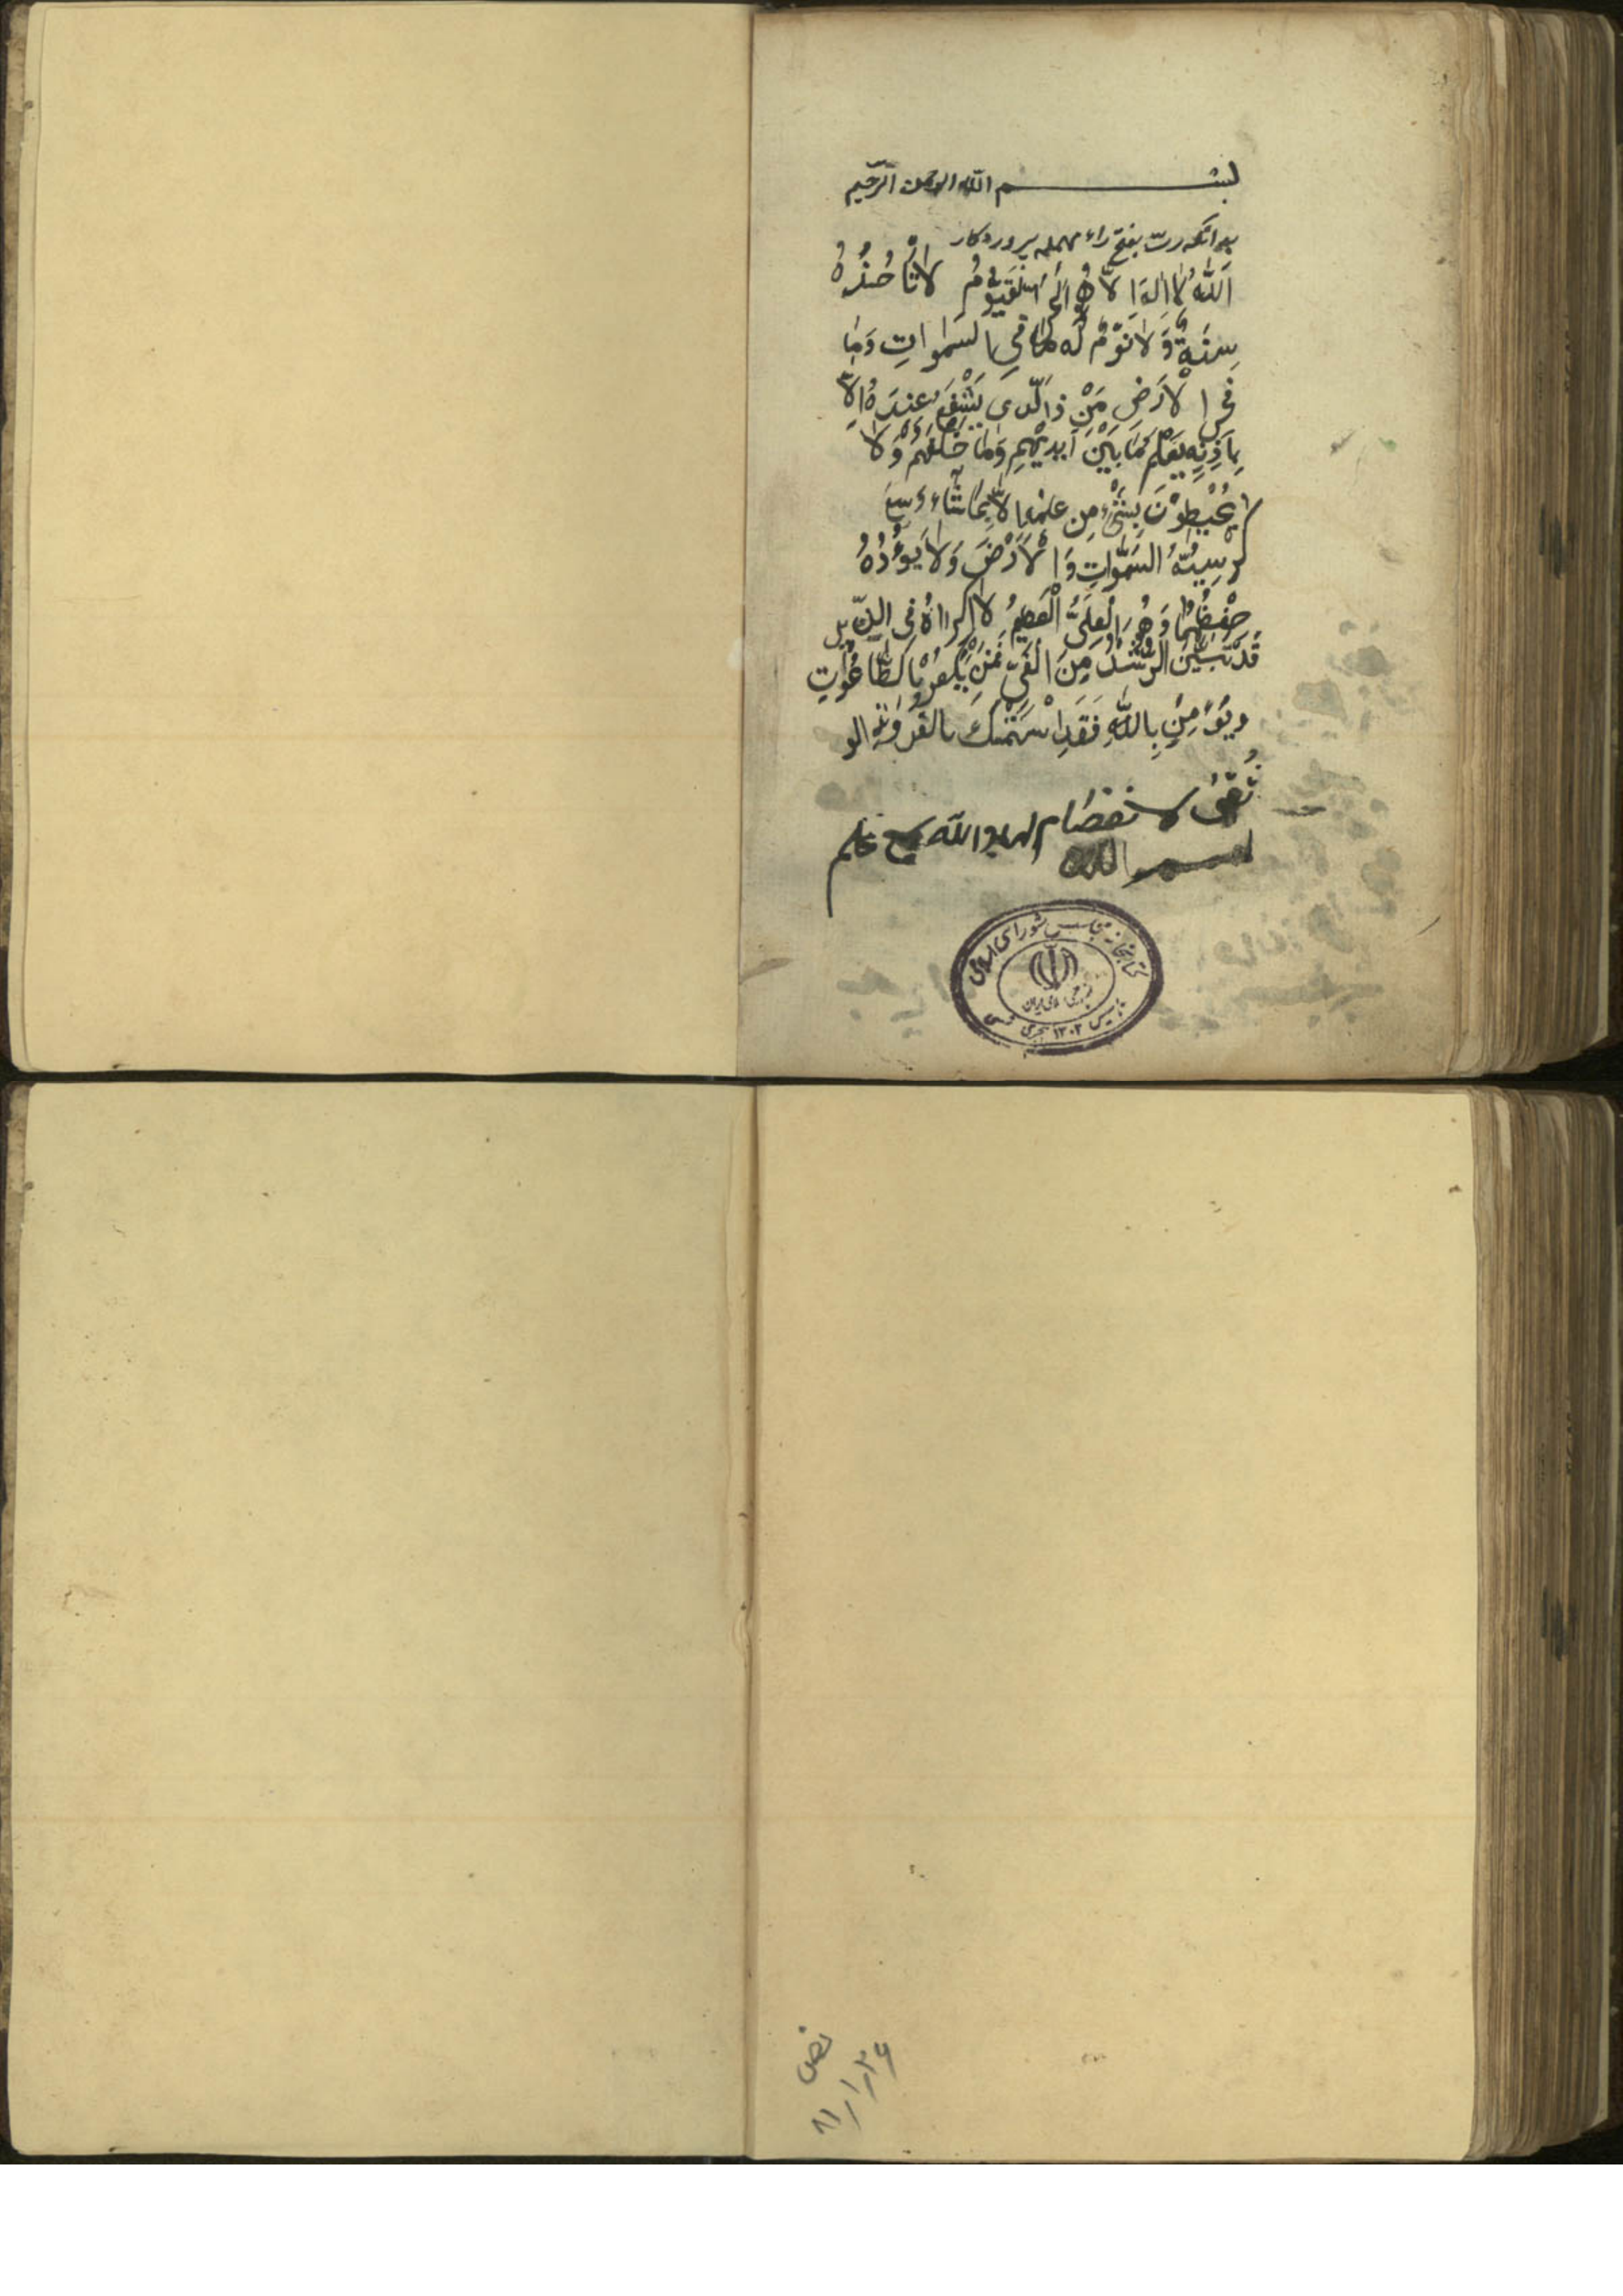 بسم الله الرحمن الرحیم
بدانکه ربّ بفتح راء مهمله پروردگار
اَللّٰهُ لا اِلهَ اِلاّ هُوَ الْقَیّوُمُ لا تَاْخُذُهُ
سِنَةٌ وَلا نَوْمٌ لَه مٰا فی السَمٰواتِ وَمٰا
فی الْاَرْضِ مَنْ ذَالَّذی یَشْفَعُ عِنْدَهُ اِلاّ
بِاِذْنِهِ یَعْلَمُ مٰا بَیْنَ اَیْدیْهِمِ وَمٰا خَلْفَهُمْ وَلا
یُحْیطُوْنَ بِشَیْءٍ مِن عِلْمِهِ اِلاّ بِمٰا شٰاءَ وَسِعَ
کُرْسِیُّهُ السَّمٰوٰاتِ وَالْاَرْضَ وَلا یَؤُدُهُ
حِفْظُهُمٰا وَهُوَ الْعَلِیُّ الْعَظیمُ لا اِکْرااهَ فِی الدّین
قَدْ تَبَیَّنَ الرُّشْدُ مِنَ الْغَیِّ فَمَنْ یَکْفُرْ بِالطّٰاغُوتِ
وَیُؤْمِنْ بِاللّٰهِ فَقَدِاسْتَمْسَکَ بالعُرْوَةِ الو
ثْقیٰ لا نفصٰام لها والله سمیع علیم
بسم الله
کتابخانه مجلس شورای اسلامی
جمهوری اسلامی ایران
تاسیس ۱۳۰۲ هجری شمسی